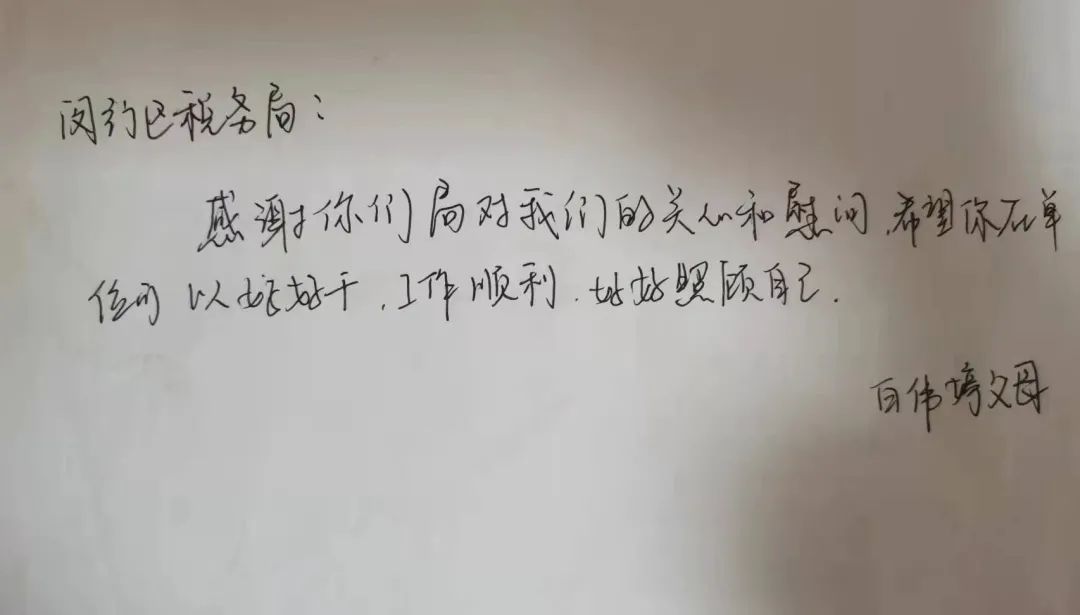 闵行区税务局：
感谢你们局对我们的关心和慰问，希望你在单
位可以好好干，工作顺利，好好照顾自己.
白伟婷父母